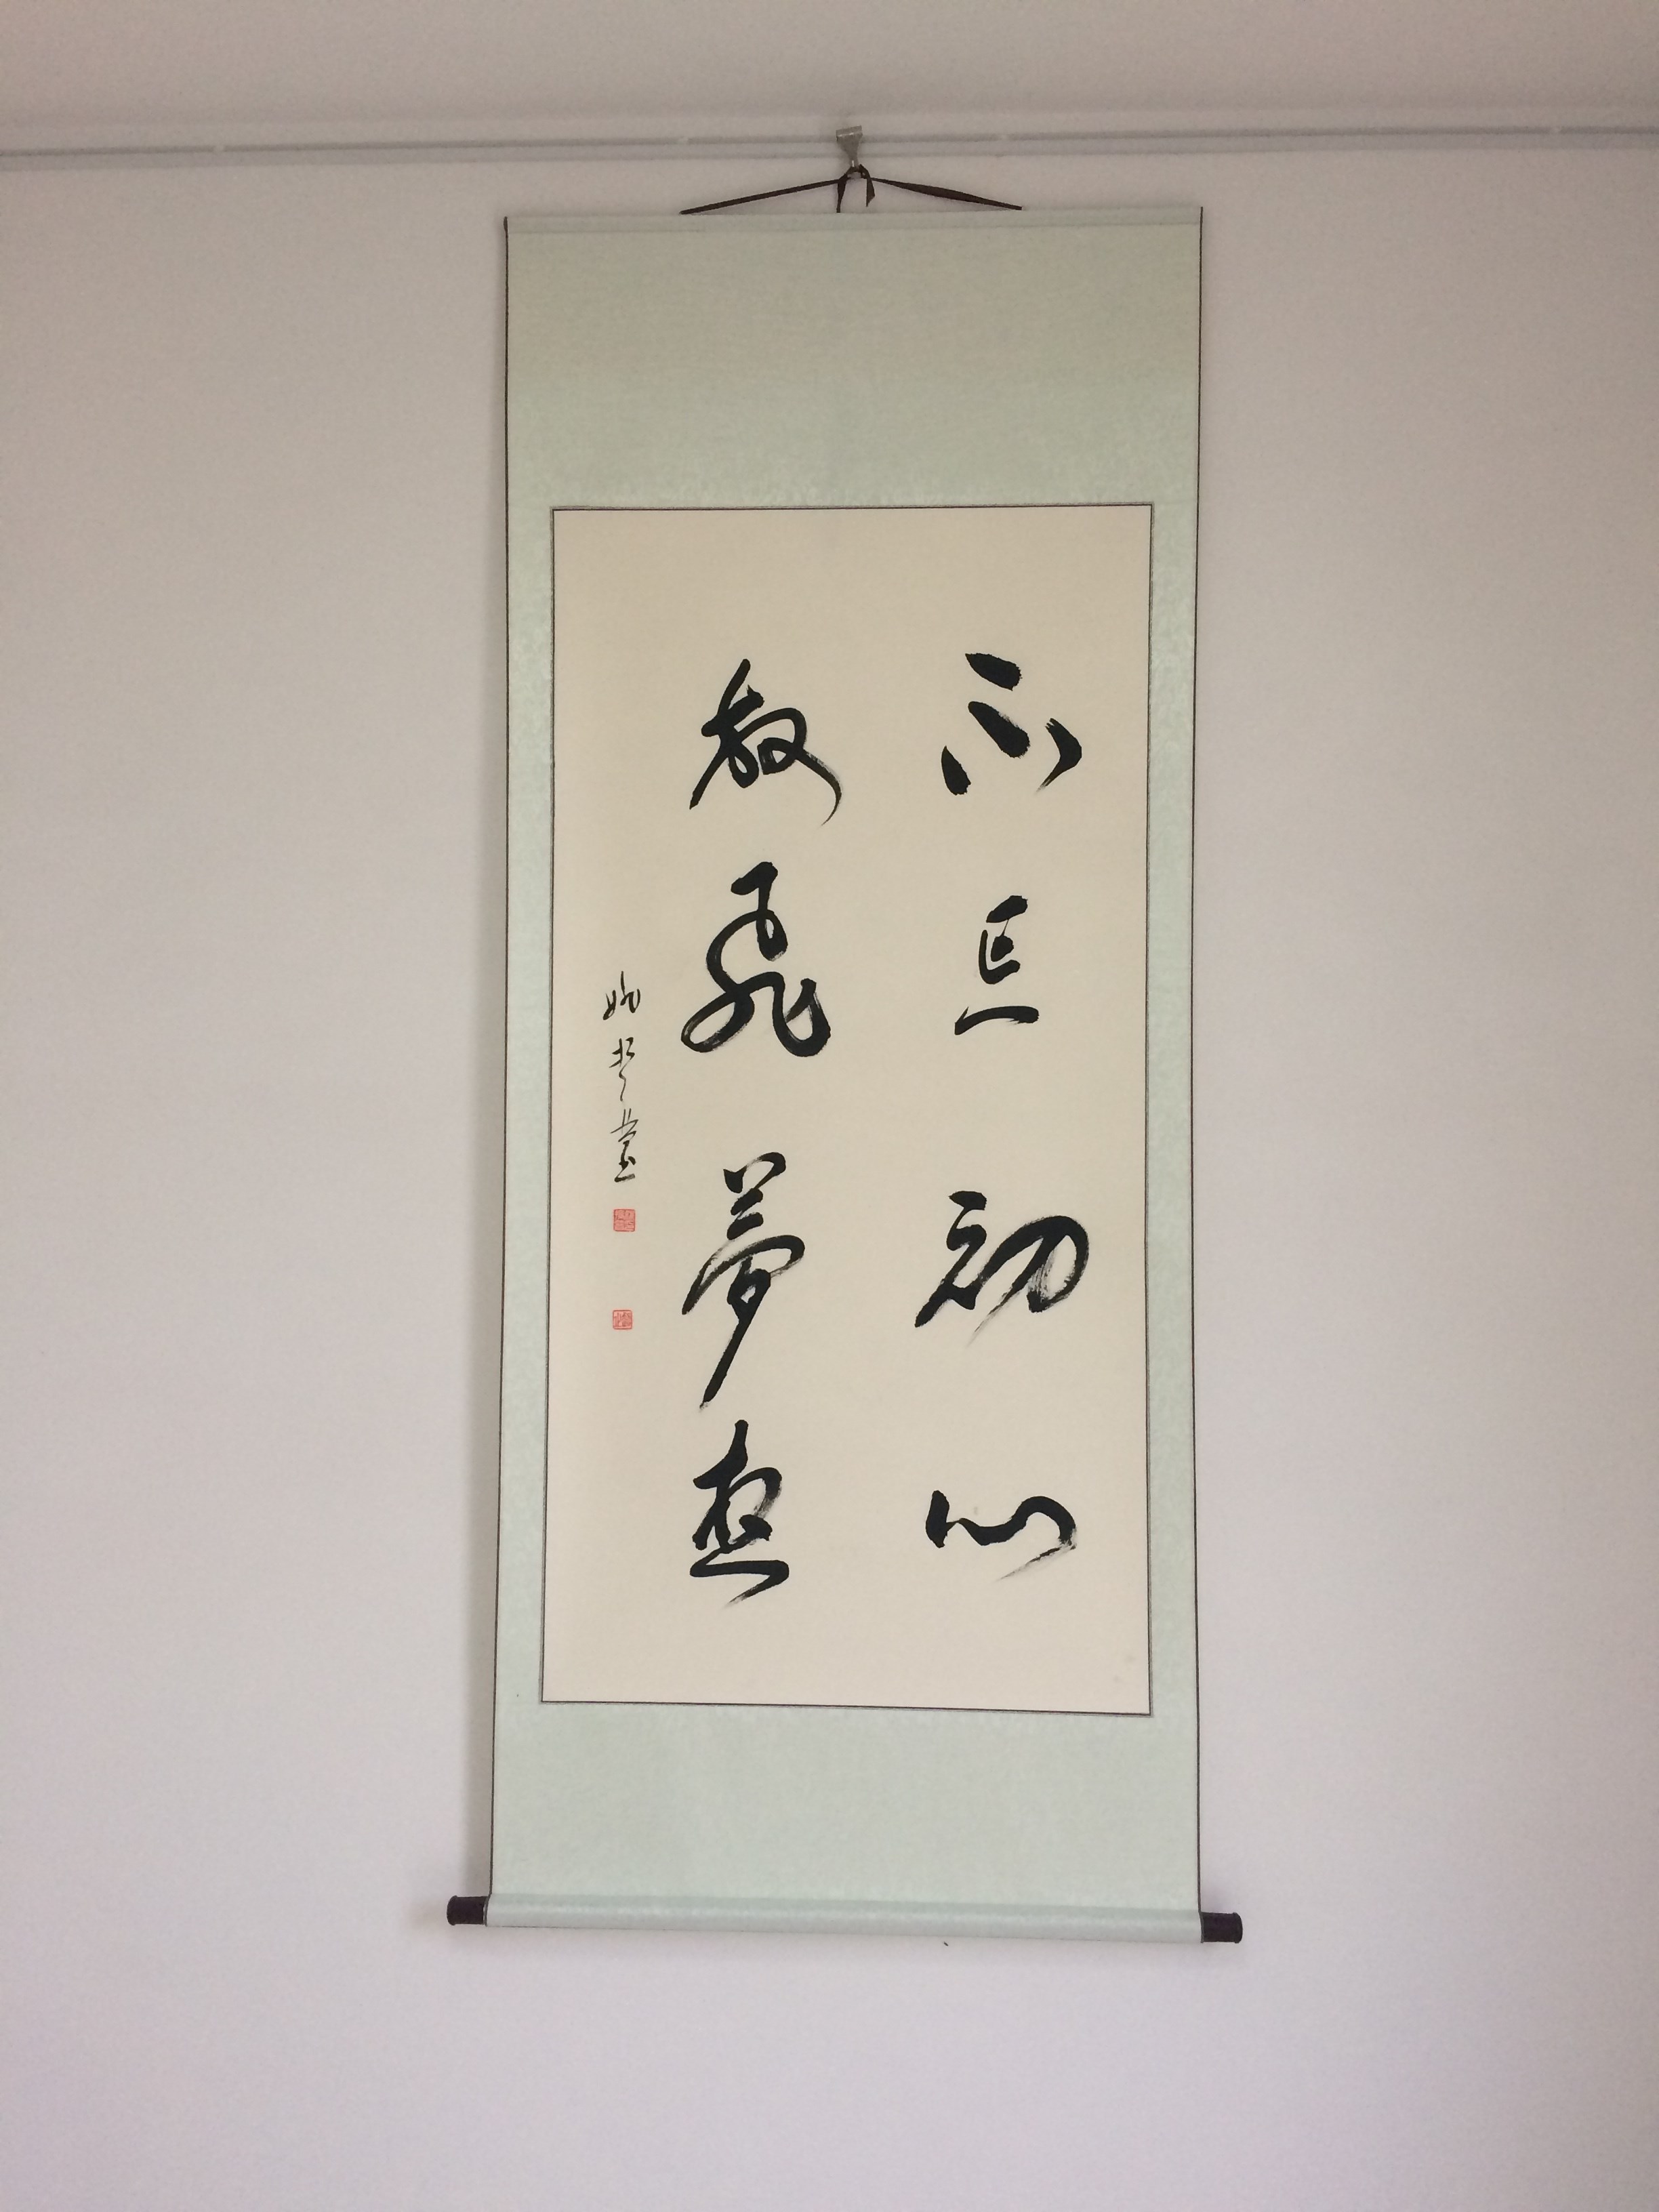 不忘初心
放飛夢想